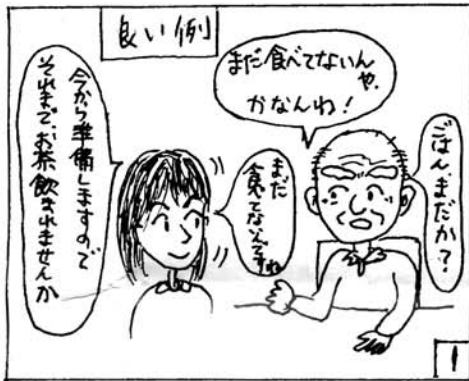 良い例
ごはん、まだか？
まだ食べてないんや、
かなんわ！
まだ
食べてないんですね
今から準備しますので
それまで、お茶飲まれませんか
1